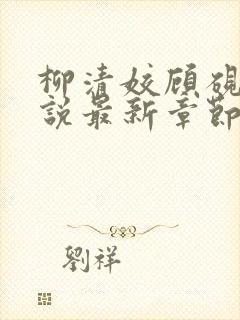 柳清姣顾砚
說最新章節
劉祥